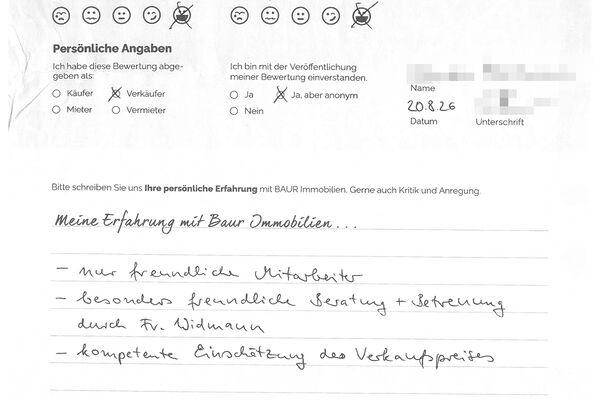 Persönliche Angaben
Ich habe diese Bewertung abge-
geben als:
Käufer Verkäufer
Mieter Vermieter
Ich bin mit der Veröffentlichung
meiner Bewertung einverstanden.
Ja Ja, aber anonym
Nein
Name
20.8.26
Datum Unterschrift
Bitte schreiben Sie uns Ihre persönliche Erfahrung mit BAUR Immobilien. Gerne auch Kritik und Anregung.
Meine Erfahrung mit Baur Immobilien...
- nur freundliche Mitarbeiter
- besonders freundliche Beratung + Betreuung
durch Fr. Widmann
- kompetente Einschätzung des Verkaufspreises